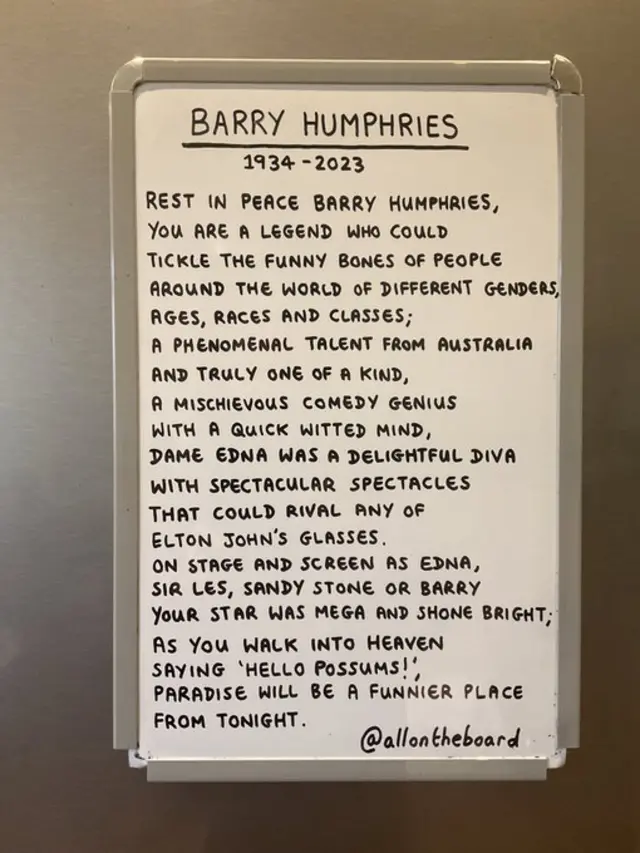 BARRY HUMPHRIES
1934-2023
REST IN PEACE BARRY HUMPHRIES,
YOU ARE A LEGEND WHO COULD
TICKLE THE FUNNY BONES OF PEOPLE
AROUND THE WORLD OF DIFFERENT GENDERS,
AGES, RACES AND CLASSES;
A PHENOMENAL TALENT FROM AUSTRALIA
AND TRULY ONE OF A KIND,
A MISCHIEVOUS COMEDY GENIUS
WITH A QUICK WITTED MIND,
DAME EDNA WAS A DELIGHTFUL DIVA
WITH SPECTACULAR SPECTACLES
THAT COULD RIVAL ANY OF
ELTON JOHN'S GLASSES.
ON STAGE AND SCREEN AS EDNA,
SIR LES, SANDY STONE OR BARRY
YOUR STAR WAS MEGA AND SHONE BRIGHT;
AS YOU WALK INTO HEAVEN
SAYING 'HELLO POSSUMS!',
PARADISE WILL BE A FUNNIER PLACE
FROM TONIGHT.
@allontheboard